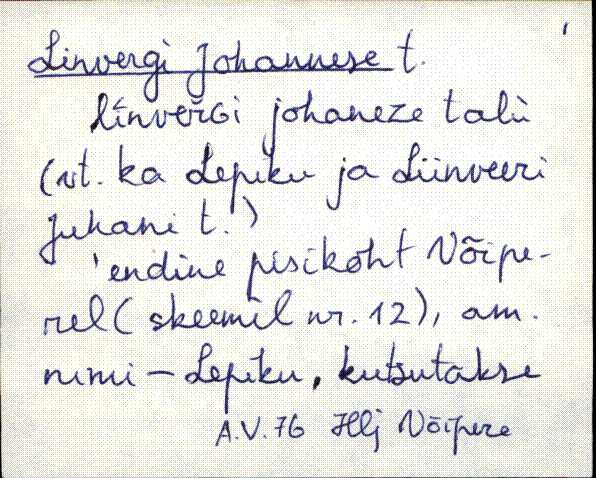 Linvergi Johannese t.
linvergi johaneze talu
(vt. ka Lepiku ja Liinveeri
Juhani t.)
'endine pisikoht Võipe-
rel (skeemil nr. 12), am.
nimi – Lepiku, kutsutakse
A.V. 76 Hlj Võipere